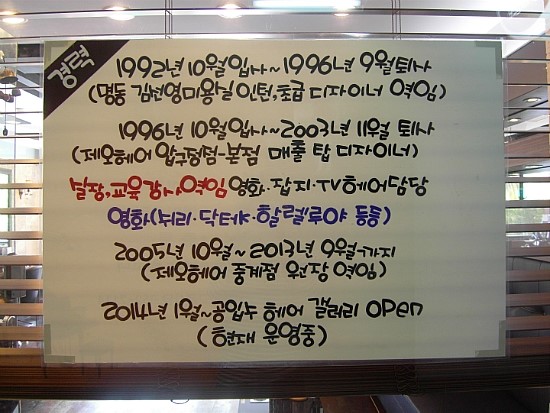 경력
1992년 10월 입사~1996년 9월 퇴사
(명동 김선영미용실 인턴,초급 디자이너 역임)
1996년 10월 입사~2003년 11월 퇴사
(제오헤어 압구정점-본점 매출 탑 디자이너)
실장,교육강사역임 영화·잡지·TV헤어담당
영화(쉬리·닥터K·할렐루야 등등)
2005년 10월~2013년 9월까지
(제오헤어 중계점 원장 역임)
2014년 1월~공입누 헤어 갤러리 OPEN
(현재 운영중)